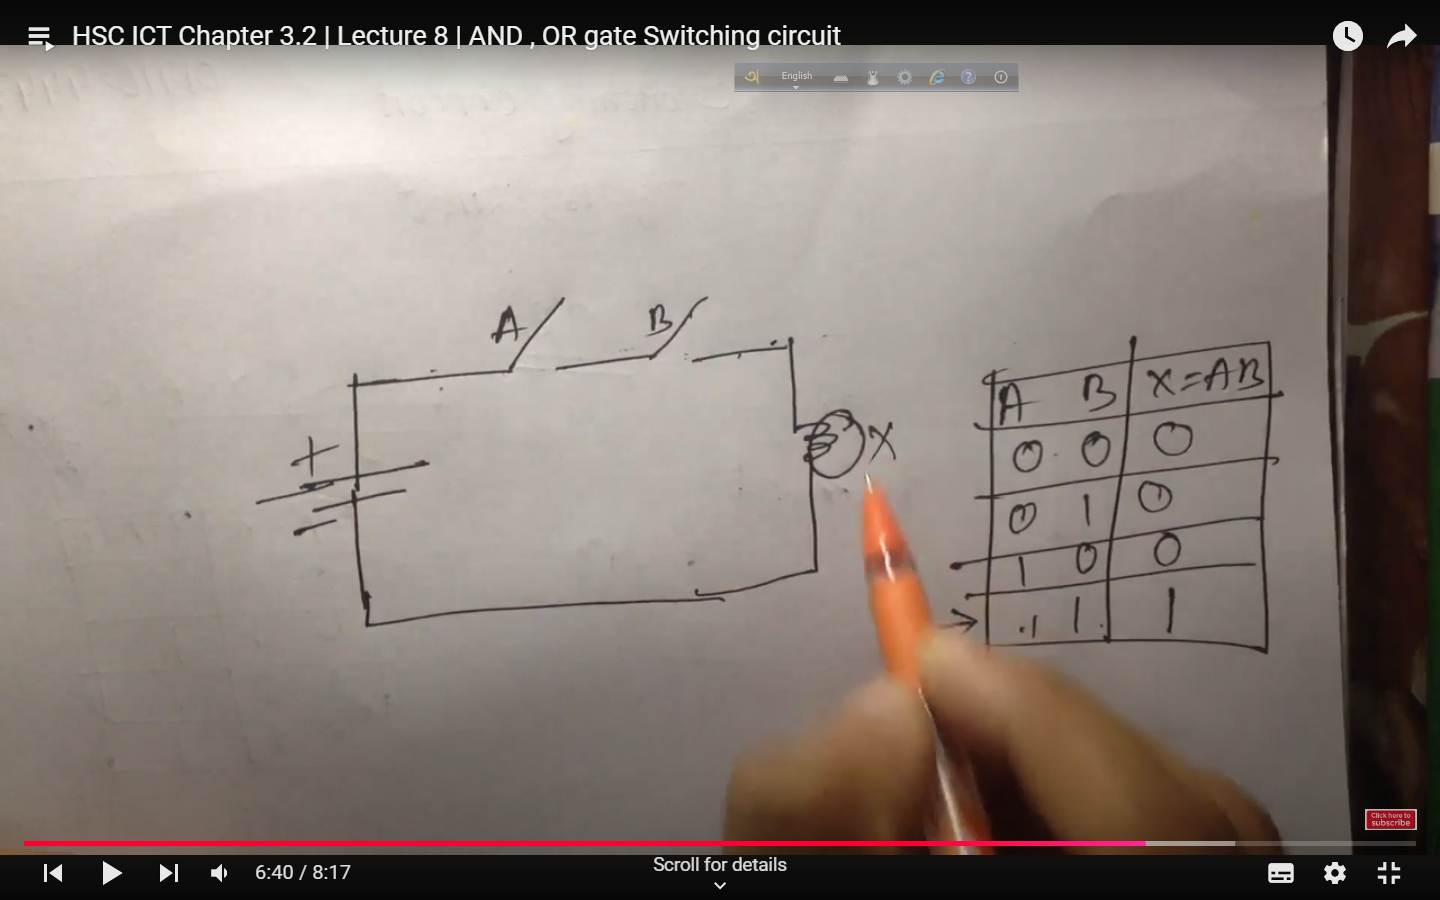 HSC ICT Chapter 3.2 | Lecture 8 | AND , OR gate Switching circuit
অ English
A B
+
X
A B X=AB
0 0 0
0 1 0
1 0 0
1 1 1
Click here to
subscribe
6:40 / 8:17
Scroll for details